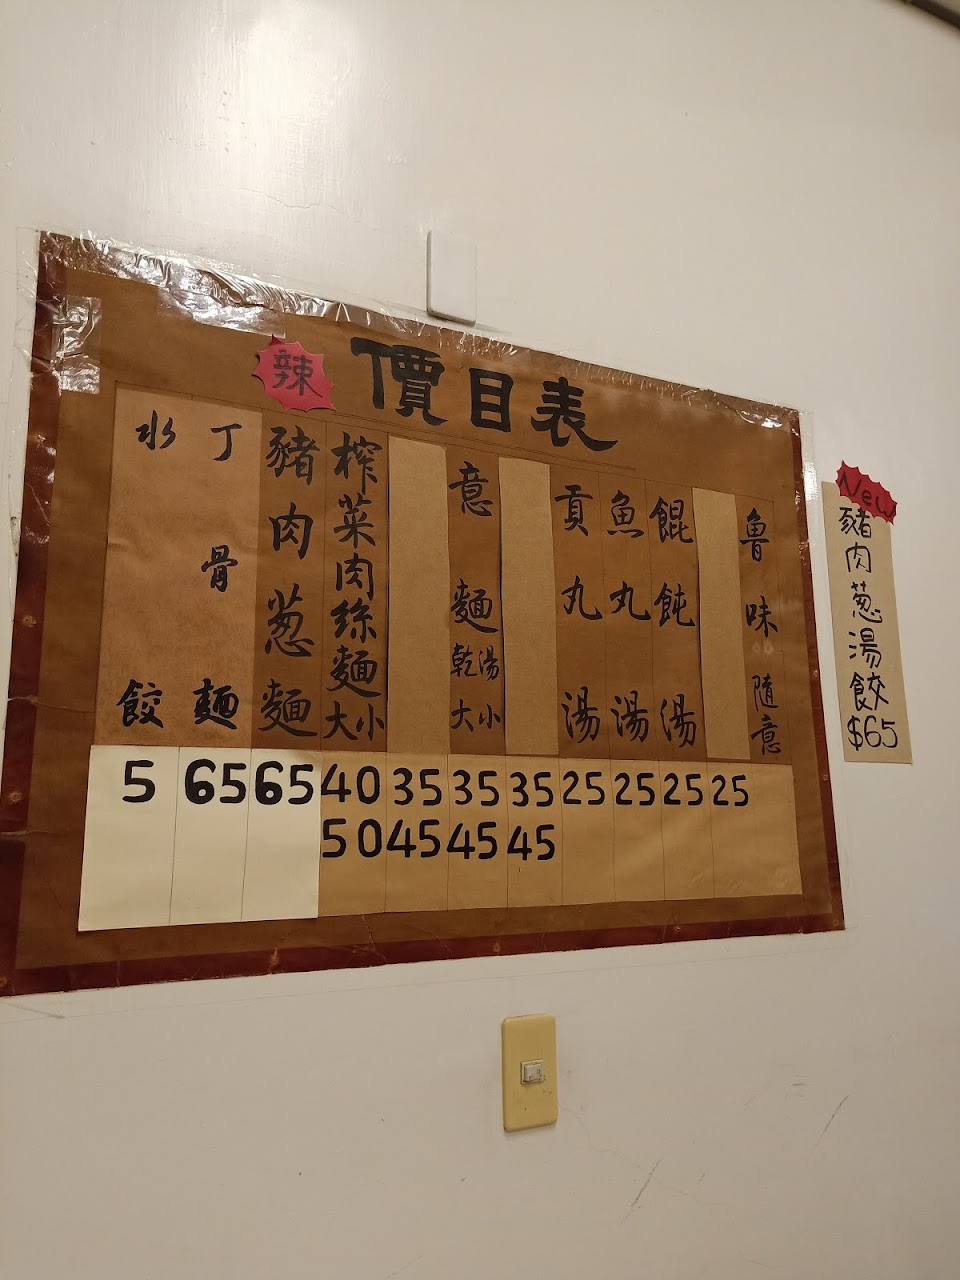 價目表
辣
魯味隨意
餛飩湯
魚丸湯
貢丸湯
意麵乾湯大小
榨菜肉絲麵大小
豬肉葱麵
丁骨麵
水餃
5 65 65 40 35 35 35 25 25 25 25
50 45 45 45
New
豬肉葱湯餃
$65